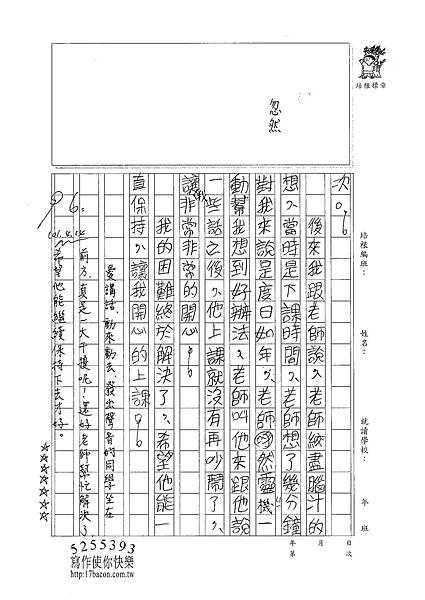 培根標章
忽然
培根編班：
姓名：
就讀學校：
年 班
年 月 日
第 次
次。
後來我跟老師說，老師絞盡腦汁的
想，當時是下課時間，老師想了幾分鐘
對我來說是度日如年，老師忽然靈機一
動幫我想到好辦法，老師叫他來跟他說
一些話之後，他上課就沒有再吵鬧了，
讓我非常非常的開心。
我的困難終於解決了，希望他能一
直保持，讓我開心的上課。
愛講話、動來動去、發出聲音的同學坐在
前方，真是一大干擾呢！還好老師幫忙解決了，
希望他能繼續保持下去才好。
96
★★★★★★
5255393
寫作使你快樂
http://17bacon.com.tw